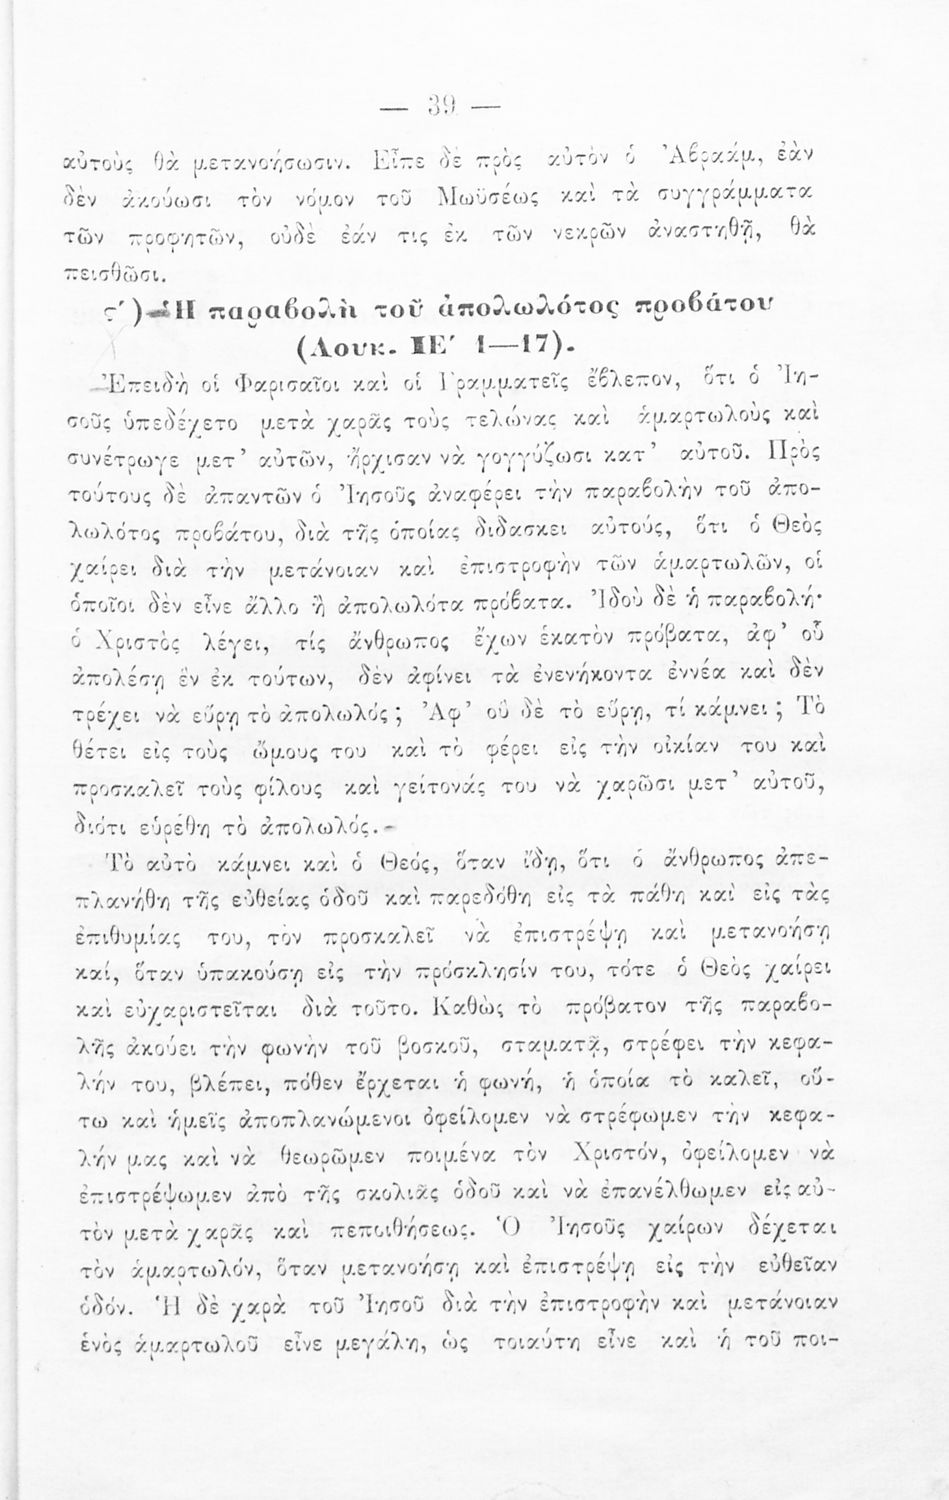 — 39 —
αὐτοὺς θὰ μετανοήσωσιν. Εἶπε δὲ πρὸς αὐτὸν ὁ Ἀβραάμ, ἐὰν
δὲν ἀκούωσι τὸν νόμον τοῦ Μωϋσέως καὶ τὰ συγγράμματα
τῶν προφητῶν, οὐδὲ ἐάν τις ἐκ τῶν νεκρῶν ἀναστηθῇ, θὰ
πεισθῶσι.
ς΄) Ἡ παραβολὴ τοῦ ἀπολωλότος προβάτου
(Λουκ. ΙΕ΄ 1—17).
Ἐπειδὴ οἱ Φαρισαῖοι καὶ οἱ Γραμματεῖς ἔβλεπον, ὅτι ὁ Ἰη-
σοῦς ὑπεδέχετο μετὰ χαρᾶς τοὺς τελώνας καὶ ἁμαρτωλοὺς καὶ
συνέτρωγε μετ’ αὐτῶν, ἤρχισαν νὰ γογγύζωσι κατ’ αὐτοῦ. Πρὸς
τούτους δὲ ἀπαντῶν ὁ Ἰησοῦς ἀναφέρει τὴν παραβολὴν τοῦ ἀπο-
λωλότος προβάτου, διὰ τῆς ὁποίας διδασκει αὐτούς, ὅτι ὁ Θεὸς
χαίρει διὰ τὴν μετάνοιαν καὶ ἐπιστροφὴν τῶν ἁμαρτωλῶν, οἱ
ὁποῖοι δὲν εἶνε ἄλλο ἢ ἀπολωλότα πρόβατα. Ἰδοὺ δὲ ἡ παραβολή·
ὁ Χριστὸς λέγει, τίς ἄνθρωπος ἔχων ἑκατὸν πρόβατα, ἀφ’ οὗ
ἀπολέσῃ ἓν ἐκ τούτων, δὲν ἀφίνει τὰ ἐνενήκοντα ἐννέα καὶ δὲν
τρέχει νὰ εὕρῃ τὸ ἀπολωλός; Ἀφ’ οὗ δὲ τὸ εὕρῃ, τί κάμνει; Τὸ
θέτει εἰς τοὺς ὤμους του καὶ τὸ φέρει εἰς τὴν οἰκίαν του καὶ
προσκαλεῖ τοὺς φίλους καὶ γείτονάς του νὰ χαρῶσι μετ’ αὐτοῦ,
διότι εὑρέθη τὸ ἀπολωλός.
Τὸ αὐτὸ κάμνει καὶ ὁ Θεός, ὅταν ἴδῃ, ὅτι ὁ ἄνθρωπος ἀπε-
πλανήθη τῆς εὐθείας ὁδοῦ καὶ παρεδόθη εἰς τὰ πάθη καὶ εἰς τὰς
ἐπιθυμίας του, τὸν προσκαλεῖ νὰ ἐπιστρέψῃ καὶ μετανοήσῃ
καί, ὅταν ὑπακούσῃ εἰς τὴν πρόσκλησίν του, τότε ὁ Θεὸς χαίρει
καὶ εὐχαριστεῖται διὰ τοῦτο. Καθὼς τὸ πρόβατον τῆς παραβο-
λῆς ἀκούει τὴν φωνὴν τοῦ βοσκοῦ, σταματᾷ, στρέφει τὴν κεφα-
λήν του, βλέπει, πόθεν ἔρχεται ἡ φωνή, ἡ ὁποία τὸ καλεῖ, οὕ-
τω καὶ ἡμεῖς ἀποπλανώμενοι ὀφείλομεν νὰ στρέφωμεν τὴν κεφα-
λήν μας καὶ νὰ θεωρῶμεν ποιμένα τὸν Χριστόν, ὀφείλομεν νὰ
ἐπιστρέψωμεν ἀπὸ τῆς σκολιᾶς ὁδοῦ καὶ νὰ ἐπανέλθωμεν εἰς αὐ-
τὸν μετὰ χαρᾶς καὶ πεποιθήσεως. Ὁ Ἰησοῦς χαίρων δέχεται
τὸν ἁμαρτωλόν, ὅταν μετανοήσῃ καὶ ἐπιστρέψῃ εἰς τὴν εὐθεῖαν
ὁδόν. Ἡ δὲ χαρὰ τοῦ Ἰησοῦ διὰ τὴν ἐπιστροφὴν καὶ μετάνοιαν
ἑνὸς ἁμαρτωλοῦ εἶνε μεγάλη, ὡς τοιαύτη εἶνε καὶ ἡ τοῦ ποι-